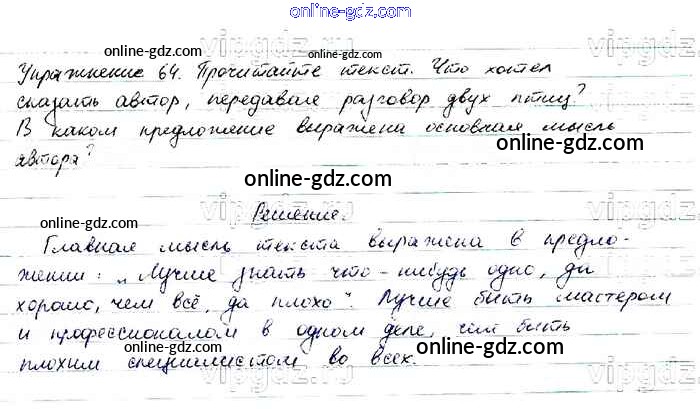 online-gdz.com
online-gdz.com
online-gdz.com
vipgdz
Упражнение 64. Прочитайте текст. Что хотел
сказать автор, передавая разговор двух птиц?
В каком предложение выражена основная мысль
автора?
online-gdz.com
online-gdz.com
online-gdz.com
vipgdz
online-gdz.com
Решение.
Главная мысль текста выражена в предло-
жении: „Лучше знать что-нибудь одно, да
хорошо, чем всё, да плохо". Лучше быть мастером
и профессионалом в одном деле, чем быть
плохим специалистом во всех.
online-gdz.com
online-gdz.com
online-gdz.com
online-gdz.com
vipgdz.ru